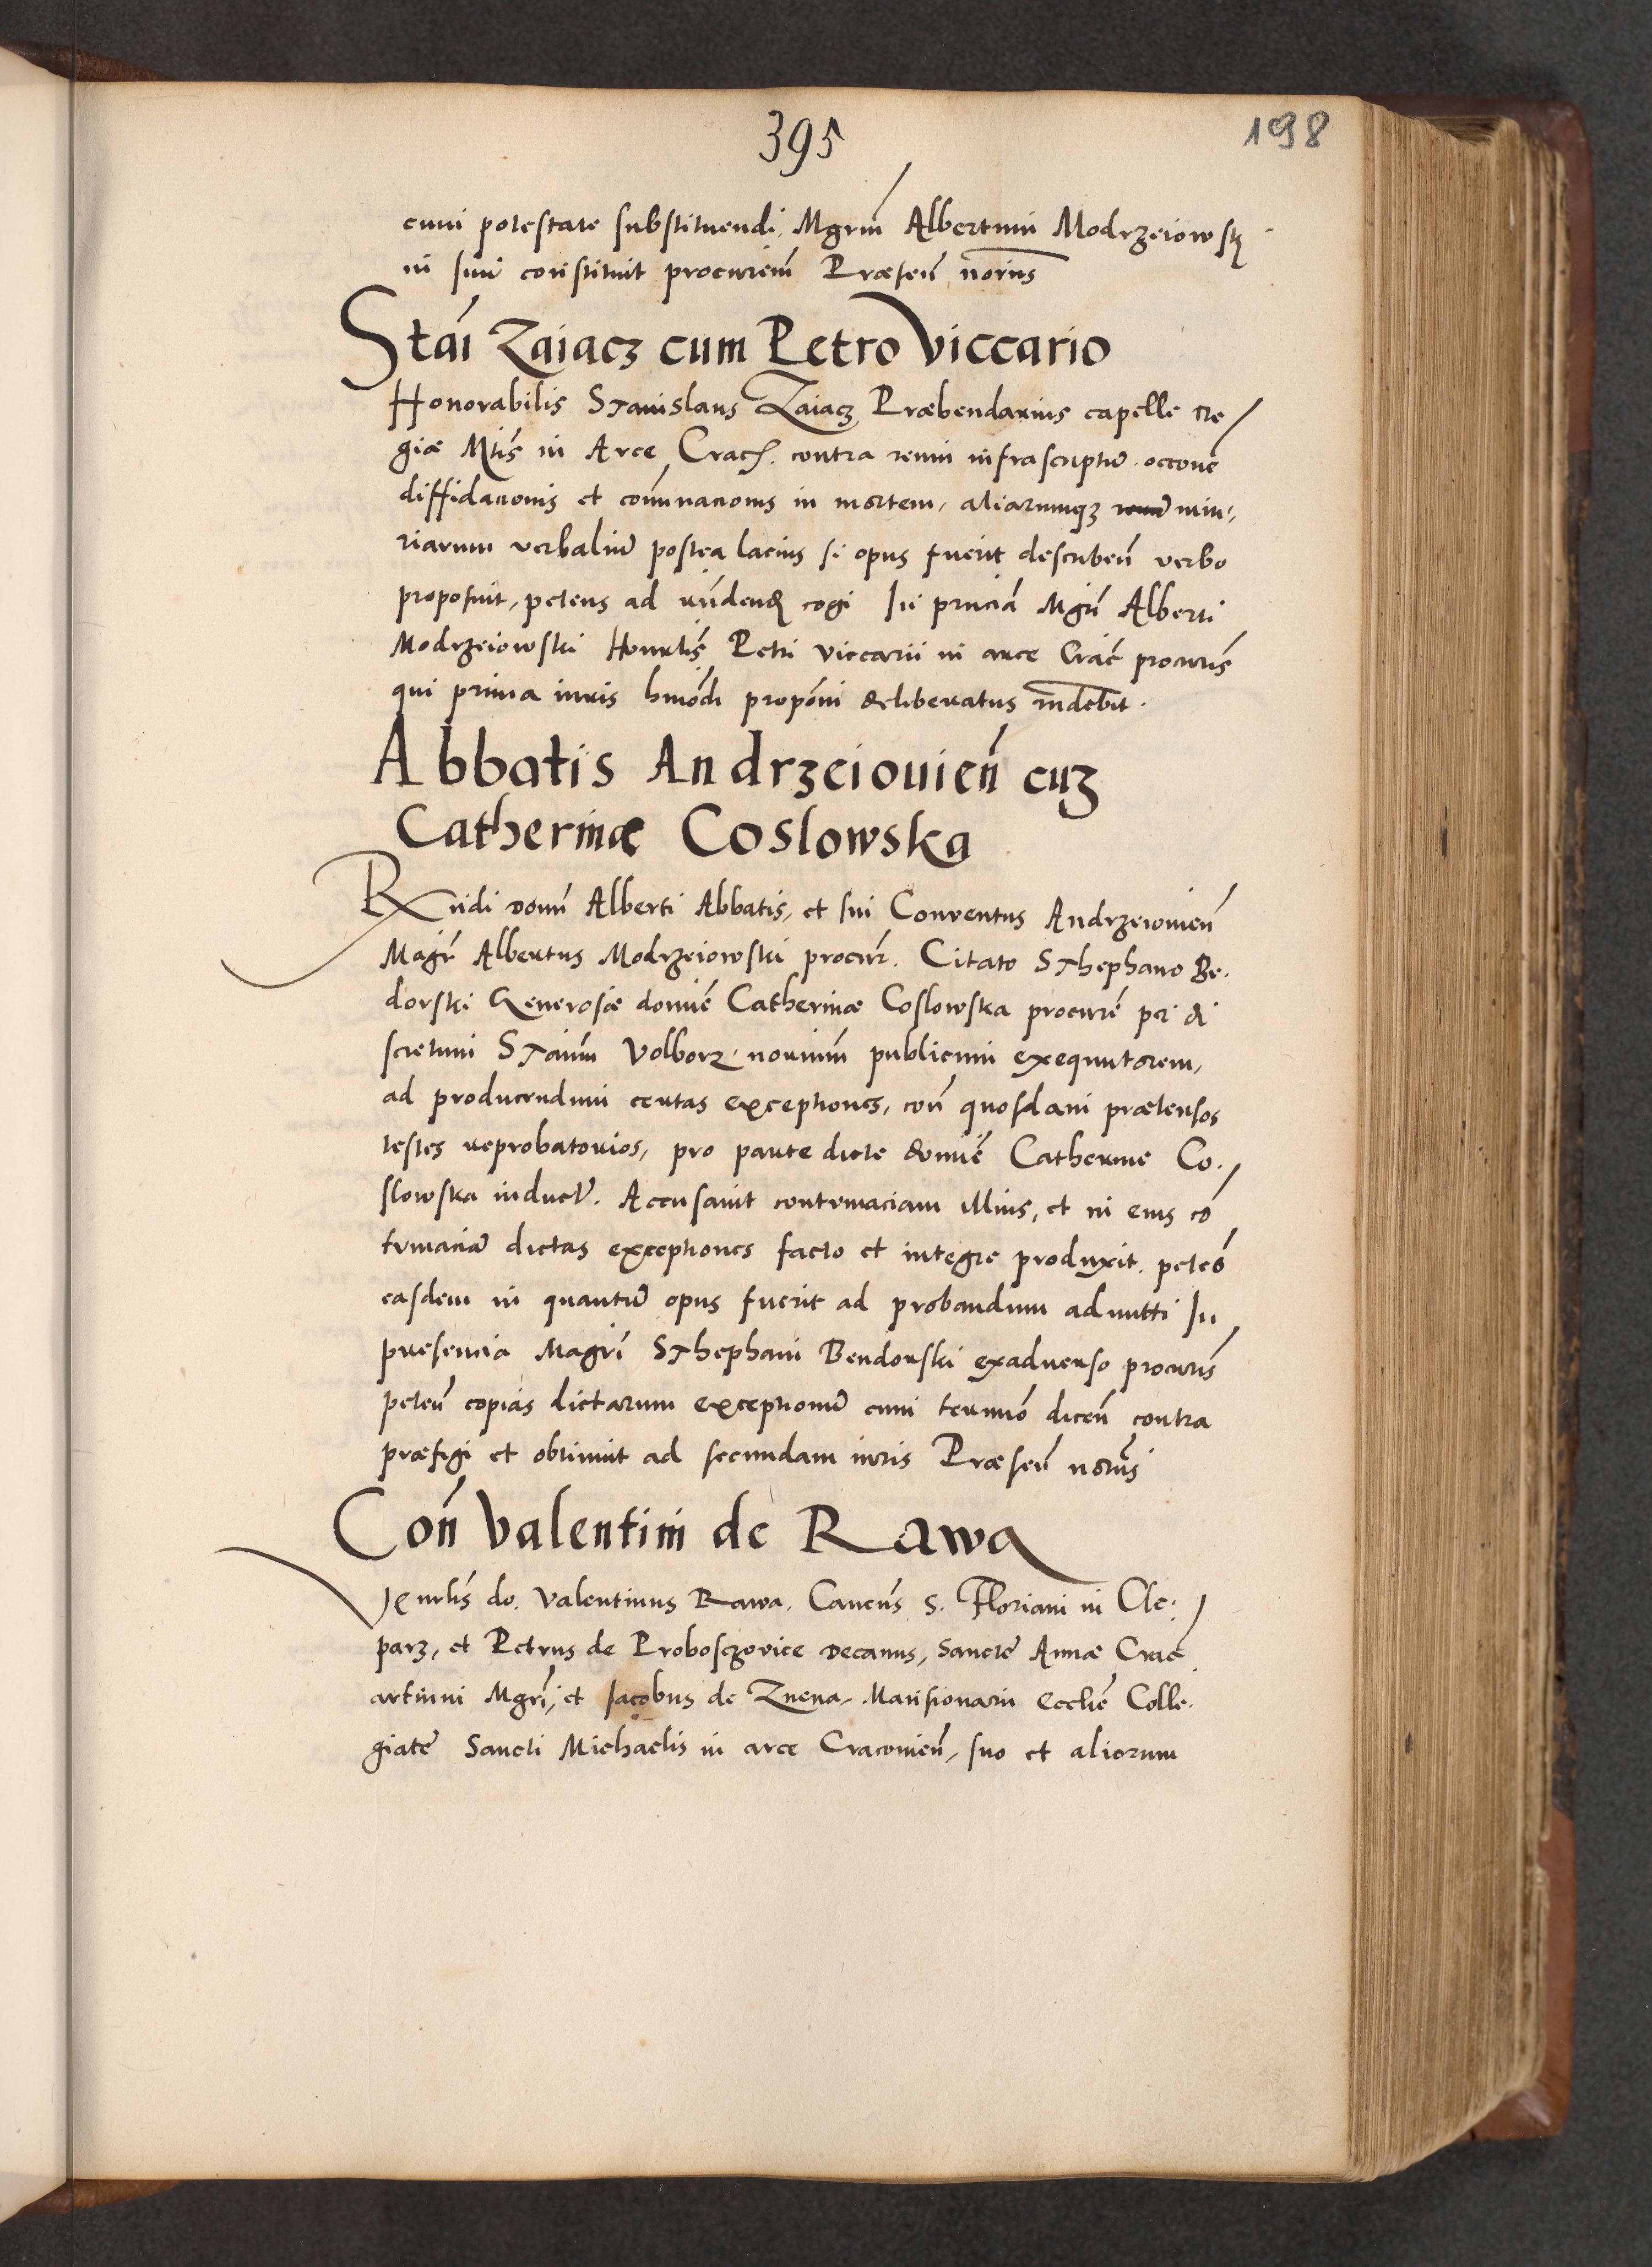 395
198
cum potestate substituendi, Mgrm̃ Albertum Modrzeiowskj
in suũ constituit procurem̃ Præseñ noriis
Stãi Zaiacz cum Petro Viccario
Honorabilis Stanislaus Zaiacz Præbendarius capelle Re
giæ Mtis̃ in Arce Crac̃. contra reum infrascriptũ. occoñe
diffidacionis et coм̃inacionis in mortem, aliarumqz iniu,
riarum verbaliũ postea lacius si opus fuerit describeñ verbo
proposuit, petens ad rñdendũ cogi In pñciã Mgrĩ Alberti
Modrzeiowski Honrlis̃ Petri viccarii in arce Crac̃ procuris̃
qui prima iuris hmõdi propõni deliberatus rñdebit.
Abbatis Andrzeiouieñ cuz
Catherinæ Coslowska
Rx̃ndi domĩ Alberti Abbatis, et sui Conventus Andrzeiouieñ
Magr̃ Albertus Modrzeiowski procur̃. Citato Sthephano Be.
dorski Generosæ domiñe Catherinæ Coslowska procurẽ per di
scretum Stãum Volborz noriũm publicum exequutorem,
ad producendum certas exceptiones, coñ quosdam prætensos
testes reprobatorios, pro parte dicte domiñe Catherine Co.
slowska inductũ. Accusauit contumaciam illius, et in eius cõ
tumaciã dictas exceptiones facto et integre produxit. petẽs
easdem in quantũ opus fuerit ad probandum admitti In
presencia Magrĩ Sthephani Bendorski exaduerso procuris̃
peteñ copias dictarum exceptionũ cum termiõ diceñ contra
præfigi et obtinuit ad secundam iuris Præseñ noriis̃
Coñ Valentini de Rawa
Veñrlis̃ do. Valentinus Rawa. Cancus̃ S. Floriani in Cle.
parz, et Petrus de Proboszovice decanus, Sancte Annæ Crac̃
artium Mgrĩ, et Jacobus de Znena, Mansionarii Ecclie̾ Colle.
giate Sancti Michaelis in arce Cracouieñ, suo et aliorum